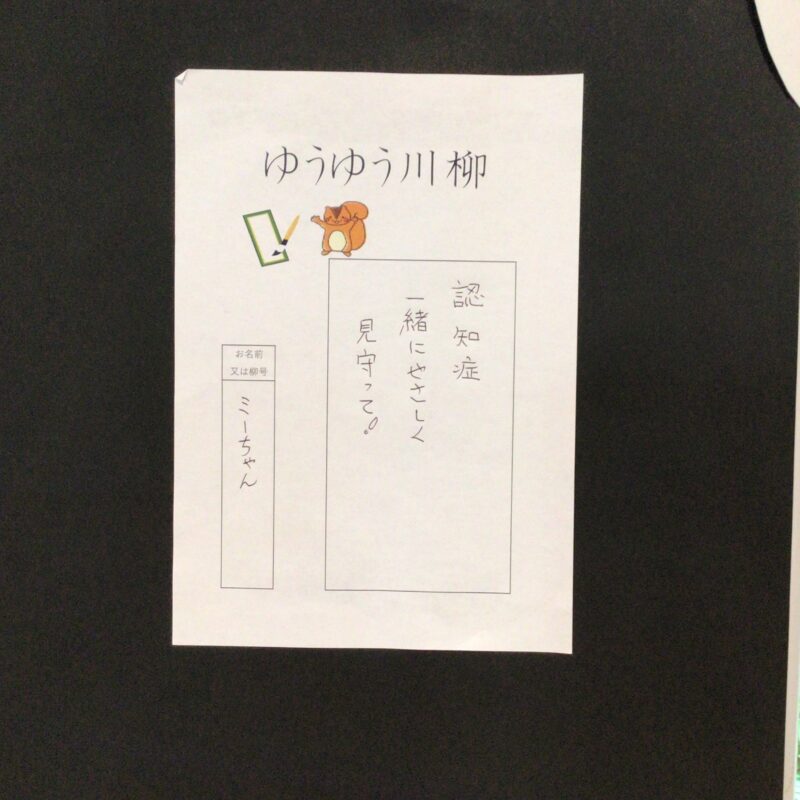 ゆうゆう川柳
認知症
一緒にやさしく
見守って!
お名前
又は柳号
ミーちゃん